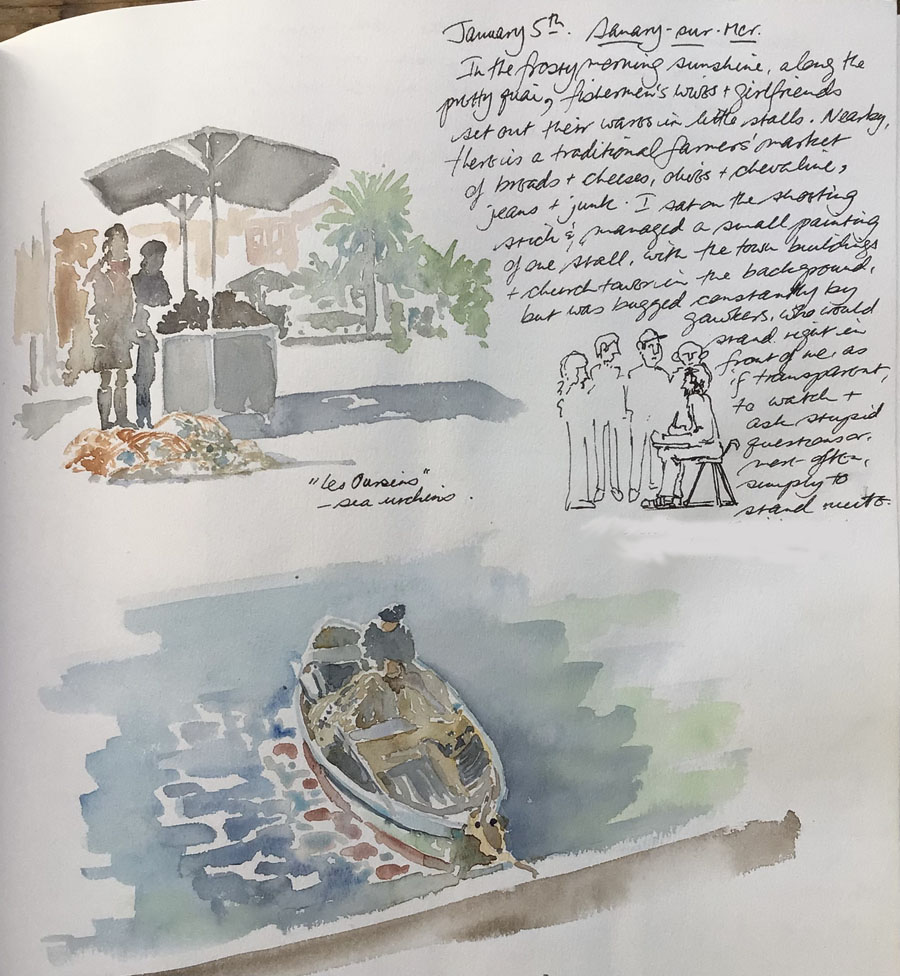 January 5th. Sanary-sur-Mer.
In the frosty morning sunshine, along the
pretty quai, fishermen's wives + girlfriends
set out their wares in little stalls. Nearby,
there is a traditional farmers' market
of breads + cheeses, olives + chevaline,
jeans + junk. I sat on the shooting
stick & managed a small painting
of one stall, with the town buildings
+ church tower in the background,
but was bugged constantly by
gawkers, who would
stand right in
front of me, as
if transparent,
to watch +
ask stupid
questions or,
more often,
simply to
stand mute.
"Les Oursins"
- sea urchins.